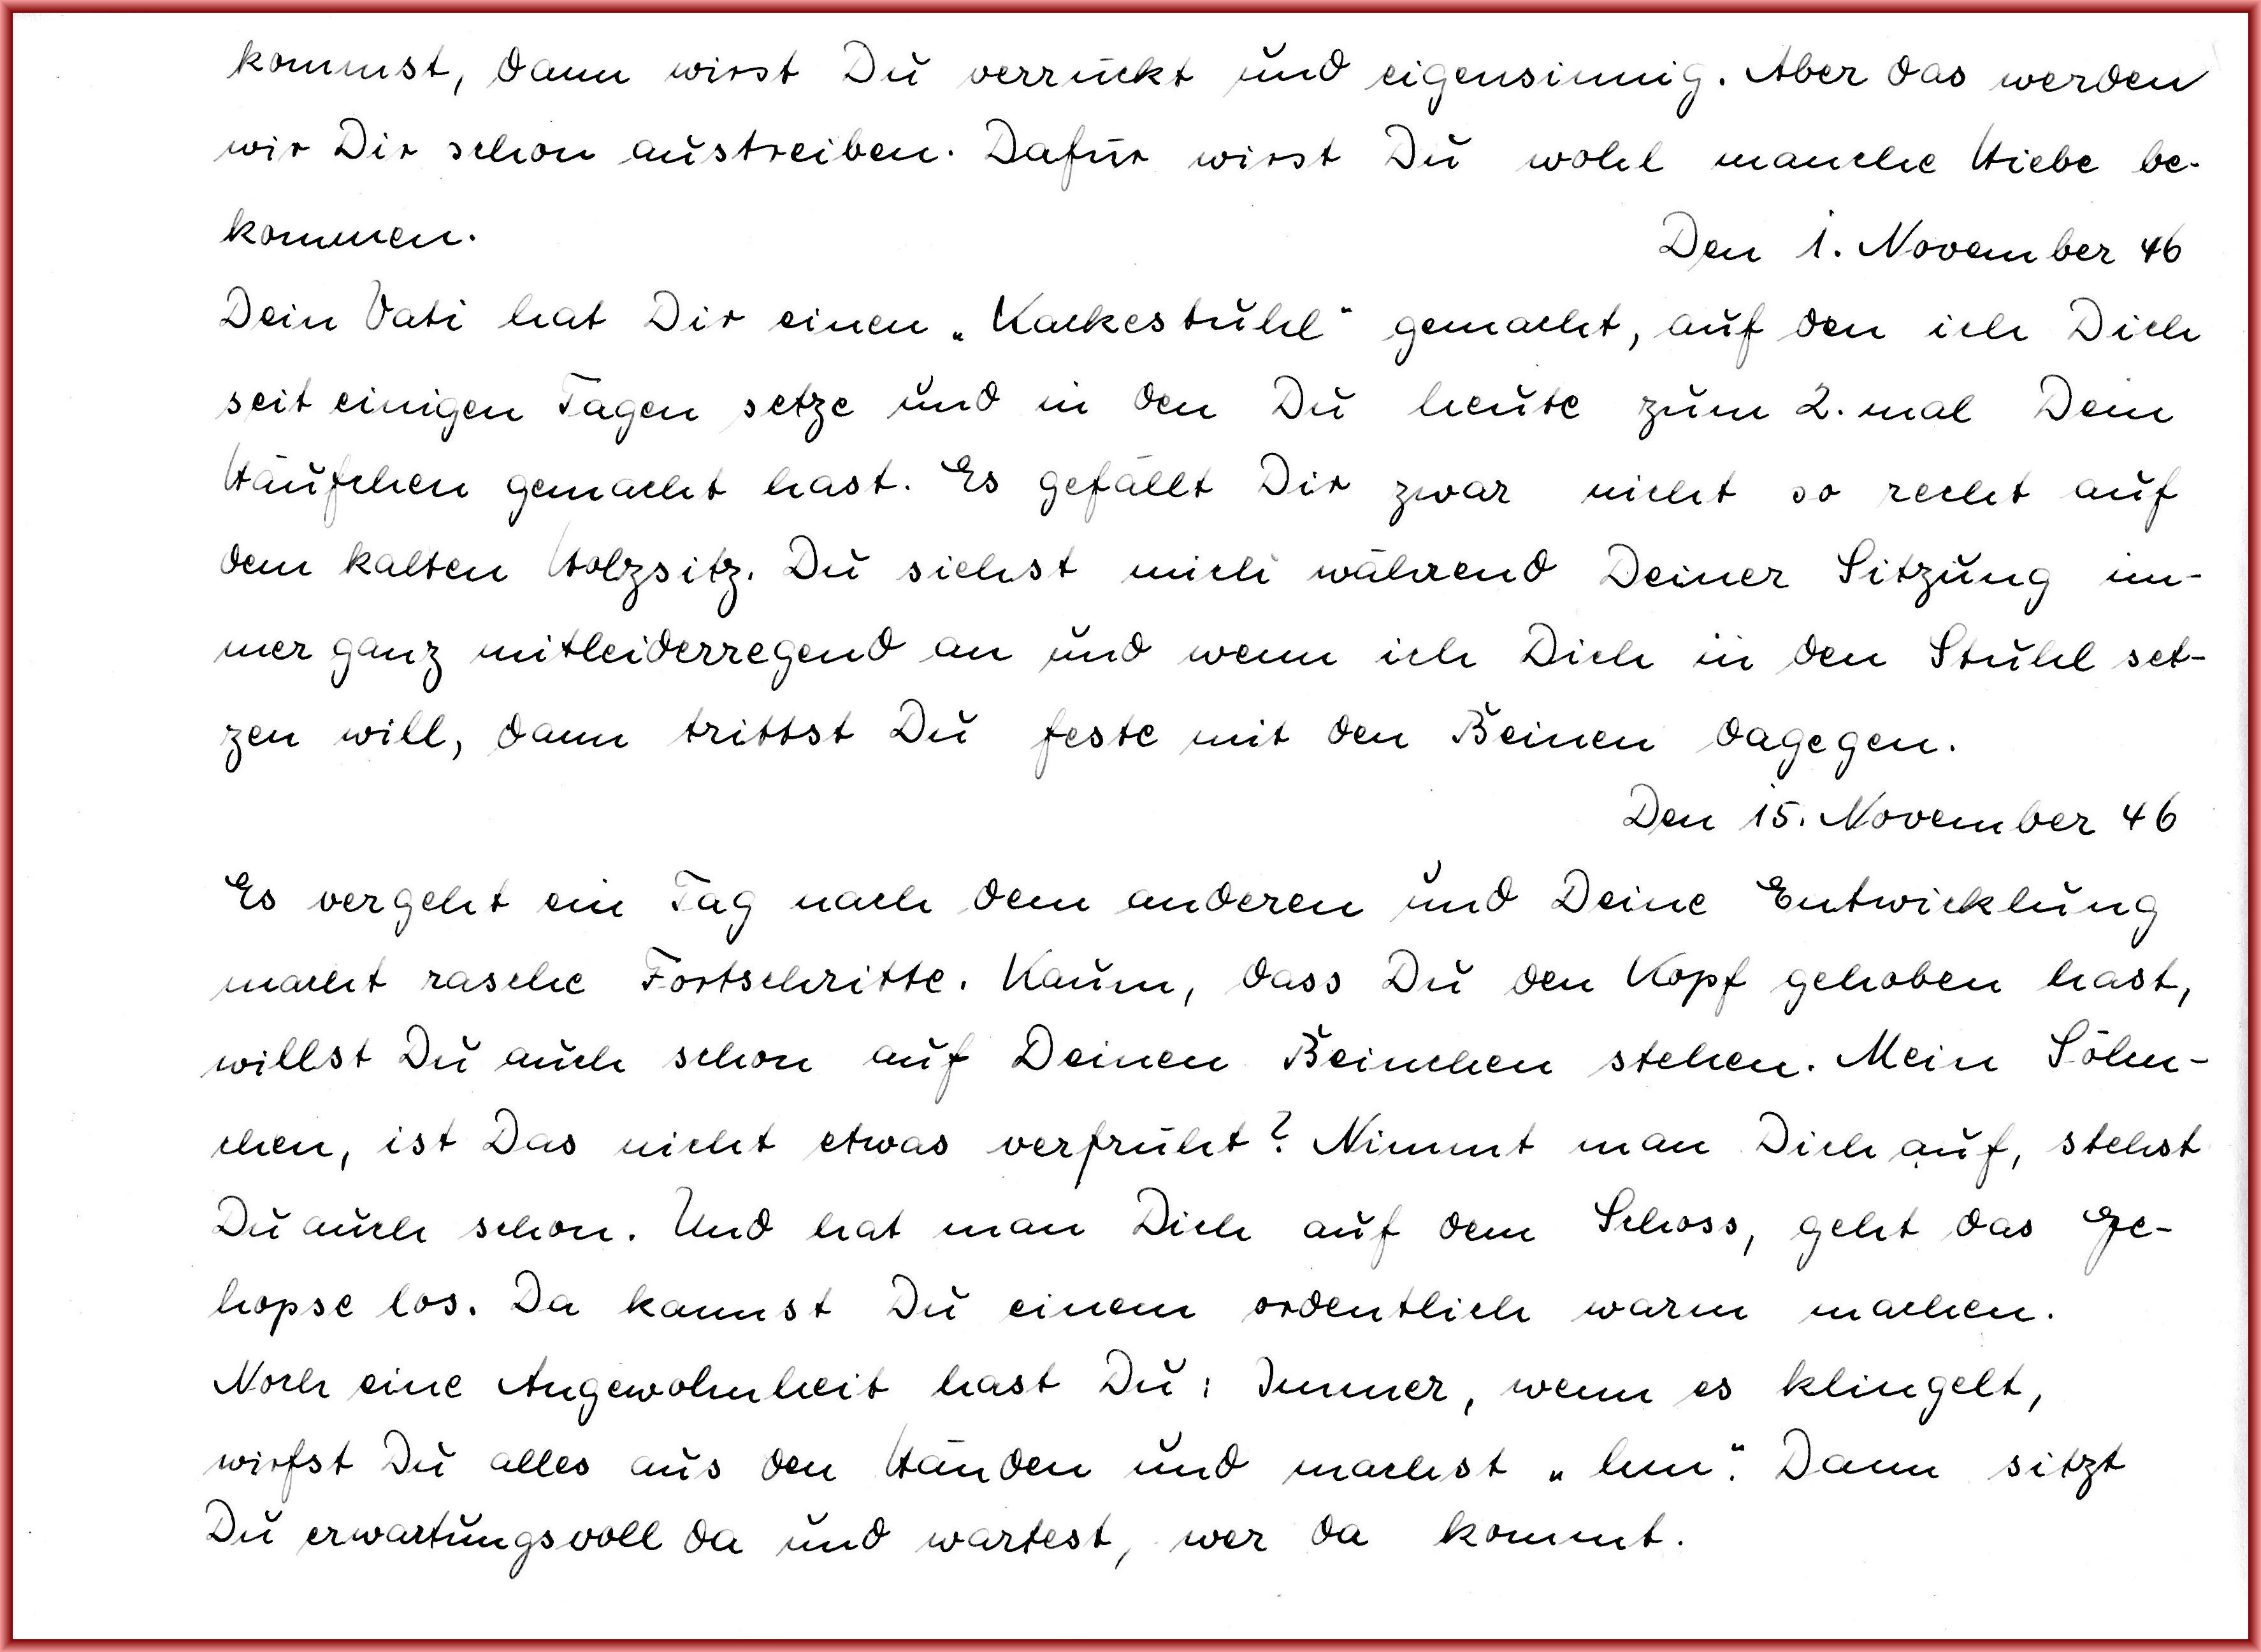 kommst, dann wirst Du verrückt und eigensinnig. Aber das werden
wir Dir schon austreiben. Dafür wirst Du wohl manche Hiebe be-
kommen.
Den 1. November 46
Dein Vati hat Dir einen „Kackestuhl“ gemacht, auf den ich Dich
seit einigen Tagen setze und in den Du heute zum 2. mal Dein
Häufchen gemacht hast. Es gefällt Dir zwar nicht so recht auf
dem kalten Holzsitz. Du siehst mich während Deiner Sitzung im-
mer ganz mitleiderregend an und wenn ich Dich in den Stuhl set-
zen will, dann trittst Du feste mit den Beinen dagegen.
Den 15. November 46
Es vergeht ein Tag nach dem anderen und Deine Entwicklung
macht rasche Fortschritte. Kaum, dass Du den Kopf gehoben hast,
willst Du auch schon auf Deinen Beinchen stehen. Mein Söhn-
chen, ist Das nicht etwas verfrüht? Nimmt man Dich auf, stehst
Du auch schon. Und hat man Dich auf dem Schoss, geht das Ge-
hopse los. Da kannst Du einem ordentlich warm machen.
Noch eine Angewohnheit hast Du: Immer, wenn es klingelt,
wirfst Du alles aus den Händen und machst „hm“. Dann sitzt
Du erwartungsvoll da und wartest, wer da kommt.